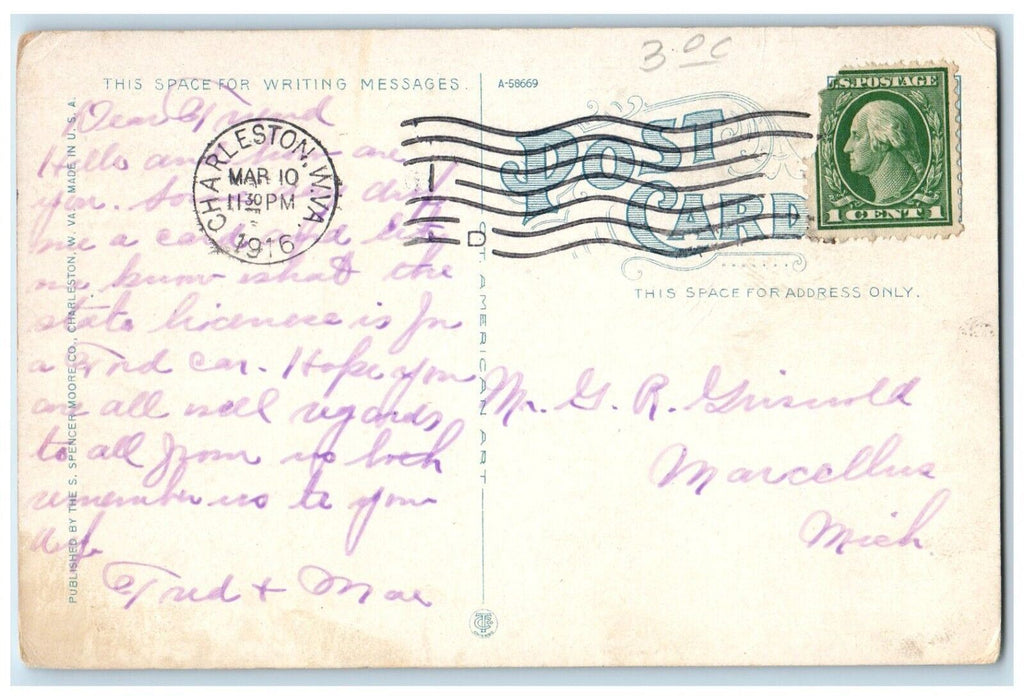 3.00
THIS SPACE FOR WRITING MESSAGES.
A-58669
U.S. POSTAGE
1 CENT 1
POST
CARD
CHARLESTON, W. VA.
MAR 10
11 30 PM
1916
D
THIS SPACE FOR ADDRESS ONLY.
PUBLISHED BY THE S. SPENCER MOORE CO., CHARLESTON, W. VA. MADE IN U. S. A.
AMERICAN ART
Dear Friend
Hello and how are
you. drop
me a card and let
me know what the
state licenece is for
a Ford car. Hope you
are all well regards
to all from us both
remember us to your
wife
Fred + Mae
Mr. G. R. Griswold
Marcellus
Mich